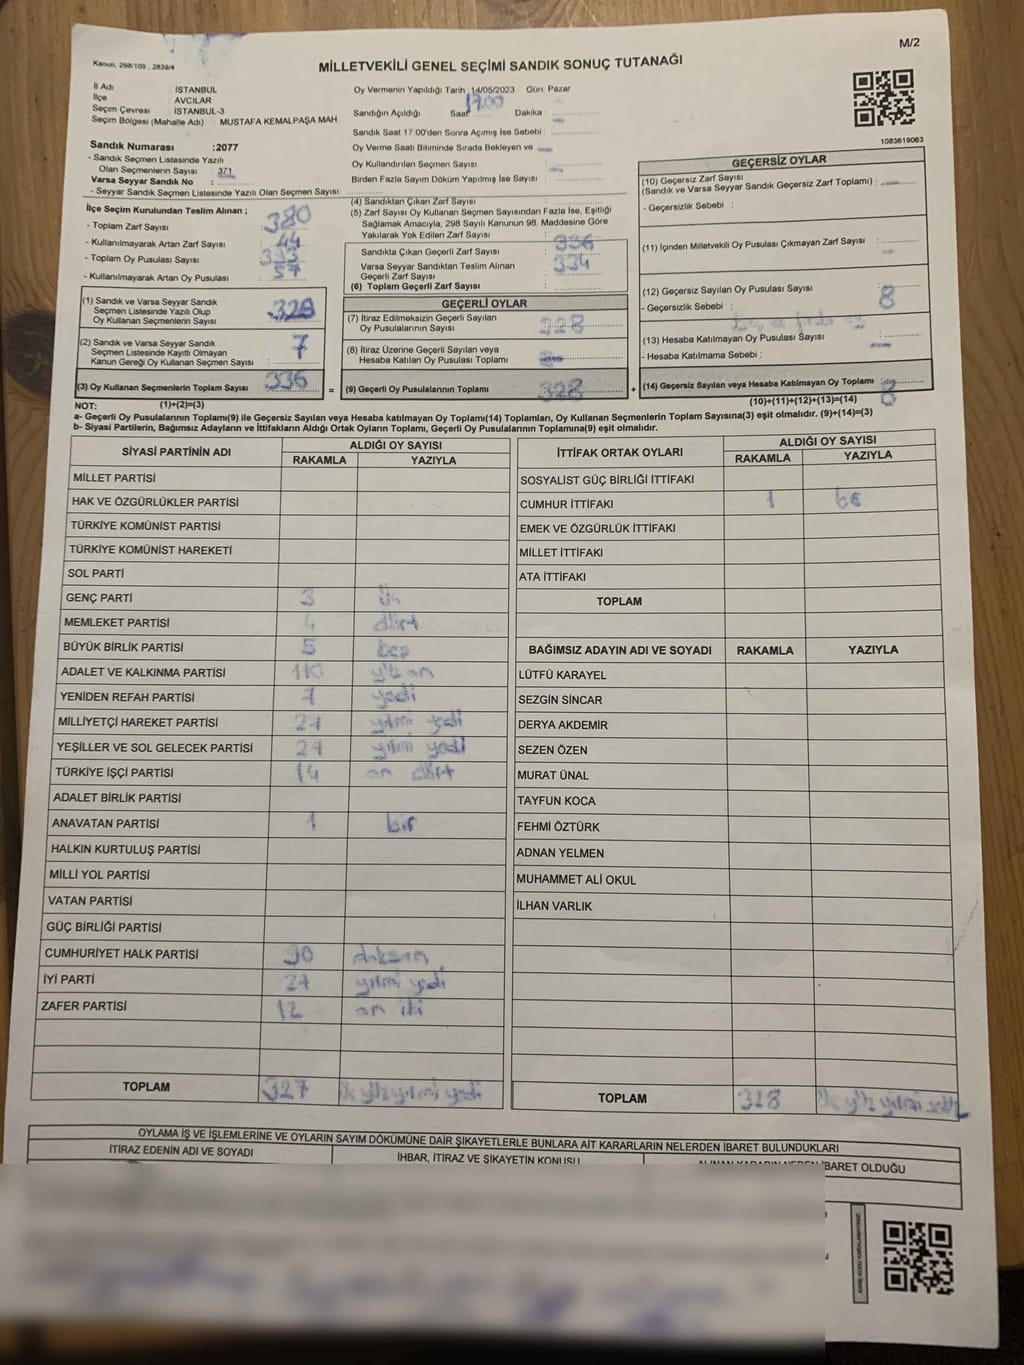 M/2
Kanun, 298/105 , 2839/4
MİLLETVEKİLİ GENEL SEÇİMİ SANDIK SONUÇ TUTANAĞI
İl Adı : İSTANBUL
İlçe : AVCILAR
Seçim Çevresi : İSTANBUL-3
Seçim Bölgesi (Mahalle Adı) : MUSTAFA KEMALPAŞA MAH.
Oy Vermenin Yapıldığı Tarih : 14/05/2023 Gün: Pazar
Sandığın Açıldığı Saat 17.00 Dakika :
Sandık Saat 17.00'den Sonra Açımış İse Sebebi :
Oy Verme Saati Bitiminde Sırada Bekleyen ve
Oy Kullandırılan Seçmen Sayısı :
Birden Fazla Sayım Döküm Yapılmış İse Sayısı :
1083619063
Sandık Numarası :2077
- Sandık Seçmen Listesinde Yazılı
Olan Seçmenlerin Sayısı : 371
Varsa Seyyar Sandık No :
- Seyyar Sandık Seçmen Listesinde Yazılı Olan Seçmen Sayısı:
İlçe Seçim Kurulundan Teslim Alınan ;
- Toplam Zarf Sayısı : 380
- Kullanılmayarak Artan Zarf Sayısı : 44
- Toplam Oy Pusulası Sayısı :
- Kullanılmayarak Artan Oy Pusulası : 57
(1) Sandık ve Varsa Seyyar Sandık
Seçmen Listesinde Yazılı Olup
Oy Kullanan Seçmenlerin Sayısı : 329
(2) Sandık ve Varsa Seyyar Sandık
Seçmen Listesinde Kayıtlı Olmayan
Kanun Gereği Oy Kullanan Seçmen Sayısı : 7
(3) Oy Kullanan Seçmenlerin Toplam Sayısı : 336 =
(4) Sandıktan Çıkan Zarf Sayısı :
(5) Zarf Sayısı Oy Kullanan Seçmen Sayısından Fazla İse, Eşitliği
Sağlamak Amacıyla, 298 Sayılı Kanunun 98. Maddesine Göre
Yakılarak Yok Edilen Zarf Sayısı :
Sandıkta Çıkan Geçerli Zarf Sayısı : 336
Varsa Seyyar Sandıktan Teslim Alınan
Geçerli Zarf Sayısı : 334
(6) Toplam Geçerli Zarf Sayısı :
GEÇERLİ OYLAR
(7) İtiraz Edilmeksizin Geçerli Sayılan
Oy Pusulalarının Sayısı : 328
(8) İtiraz Üzerine Geçerli Sayılan veya
Hesaba Katılan Oy Pusulası Toplamı :
(9) Geçerli Oy Pusulalarının Toplamı : 328 +
GEÇERSİZ OYLAR
(10) Geçersiz Zarf Sayısı
(Sandık ve Varsa Seyyar Sandık Geçersiz Zarf Toplamı) :
- Geçersizlik Sebebi :
(11) İçinden Milletvekili Oy Pusulası Çıkmayan Zarf Sayısı :
(12) Geçersiz Sayılan Oy Pusulası Sayısı : 8
- Geçersizlik Sebebi :
(13) Hesaba Katılmayan Oy Pusulası Sayısı :
- Hesaba Katılmama Sebebi :
(14) Geçersiz Sayılan veya Hesaba Katılmayan Oy Toplamı : 8
NOT: (1)+(2)=(3)
(10)+(11)+(12)+(13)=(14)
a- Geçerli Oy Pusulalarının Toplamı(9) ile Geçersiz Sayılan veya Hesaba katılmayan Oy Toplamı(14) Toplamları, Oy Kullanan Seçmenlerin Toplam Sayısına(3) eşit olmalıdır. (9)+(14)=(3)
b- Siyasi Partilerin, Bağımsız Adayların ve İttifakların Aldığı Ortak Oyların Toplamı, Geçerli Oy Pusulalarının Toplamına(9) eşit olmalıdır.
SİYASİ PARTİNİN ADI ALDIĞI OY SAYISI
RAKAMLA YAZIYLA
MİLLET PARTİSİ
HAK VE ÖZGÜRLÜKLER PARTİSİ
TÜRKİYE KOMÜNİST PARTİSİ
TÜRKİYE KOMÜNİST HAREKETİ
SOL PARTİ
GENÇ PARTİ 3 üç
MEMLEKET PARTİSİ 4 dört
BÜYÜK BİRLİK PARTİSİ 5 beş
ADALET VE KALKINMA PARTİSİ 110 yüz on
YENİDEN REFAH PARTİSİ 7 yedi
MİLLİYETÇİ HAREKET PARTİSİ 27 yirmi yedi
YEŞİLLER VE SOL GELECEK PARTİSİ 27 yirmi yedi
TÜRKİYE İŞÇİ PARTİSİ 14 on dört
ADALET BİRLİK PARTİSİ
ANAVATAN PARTİSİ 1 bir
HALKIN KURTULUŞ PARTİSİ
MİLLİ YOL PARTİSİ
VATAN PARTİSİ
GÜÇ BİRLİĞİ PARTİSİ
CUMHURİYET HALK PARTİSİ 90 doksan
İYİ PARTİ 27 yirmi yedi
ZAFER PARTİSİ 12 on iki
TOPLAM 327 üç yüz yirmi yedi
İTTİFAK ORTAK OYLARI ALDIĞI OY SAYISI
RAKAMLA YAZIYLA
SOSYALİST GÜÇ BİRLİĞİ İTTİFAKI
CUMHUR İTTİFAKI 1 bir
EMEK VE ÖZGÜRLÜK İTTİFAKI
MİLLET İTTİFAKI
ATA İTTİFAKI
TOPLAM
BAĞIMSIZ ADAYIN ADI VE SOYADI RAKAMLA YAZIYLA
LÜTFÜ KARAYEL
SEZGİN SİNCAR
DERYA AKDEMİR
SEZEN ÖZEN
MURAT ÜNAL
TAYFUN KOCA
FEHMİ ÖZTÜRK
ADNAN YELMEN
MUHAMMET ALİ OKUL
İLHAN VARLIK
TOPLAM 328 üç yüz yirmi sekiz
OYLAMA İŞ VE İŞLEMLERİNE VE OYLARIN SAYIM DÖKÜMÜNE DAİR ŞİKAYETLERLE BUNLARA AİT KARARLARIN NELERDEN İBARET BULUNDUKLARI
İTİRAZ EDENİN ADI VE SOYADI İHBAR, İTİRAZ VE ŞİKAYETİN KONUSU ALINAN KARARIN NEDEN İBARET OLDUĞU